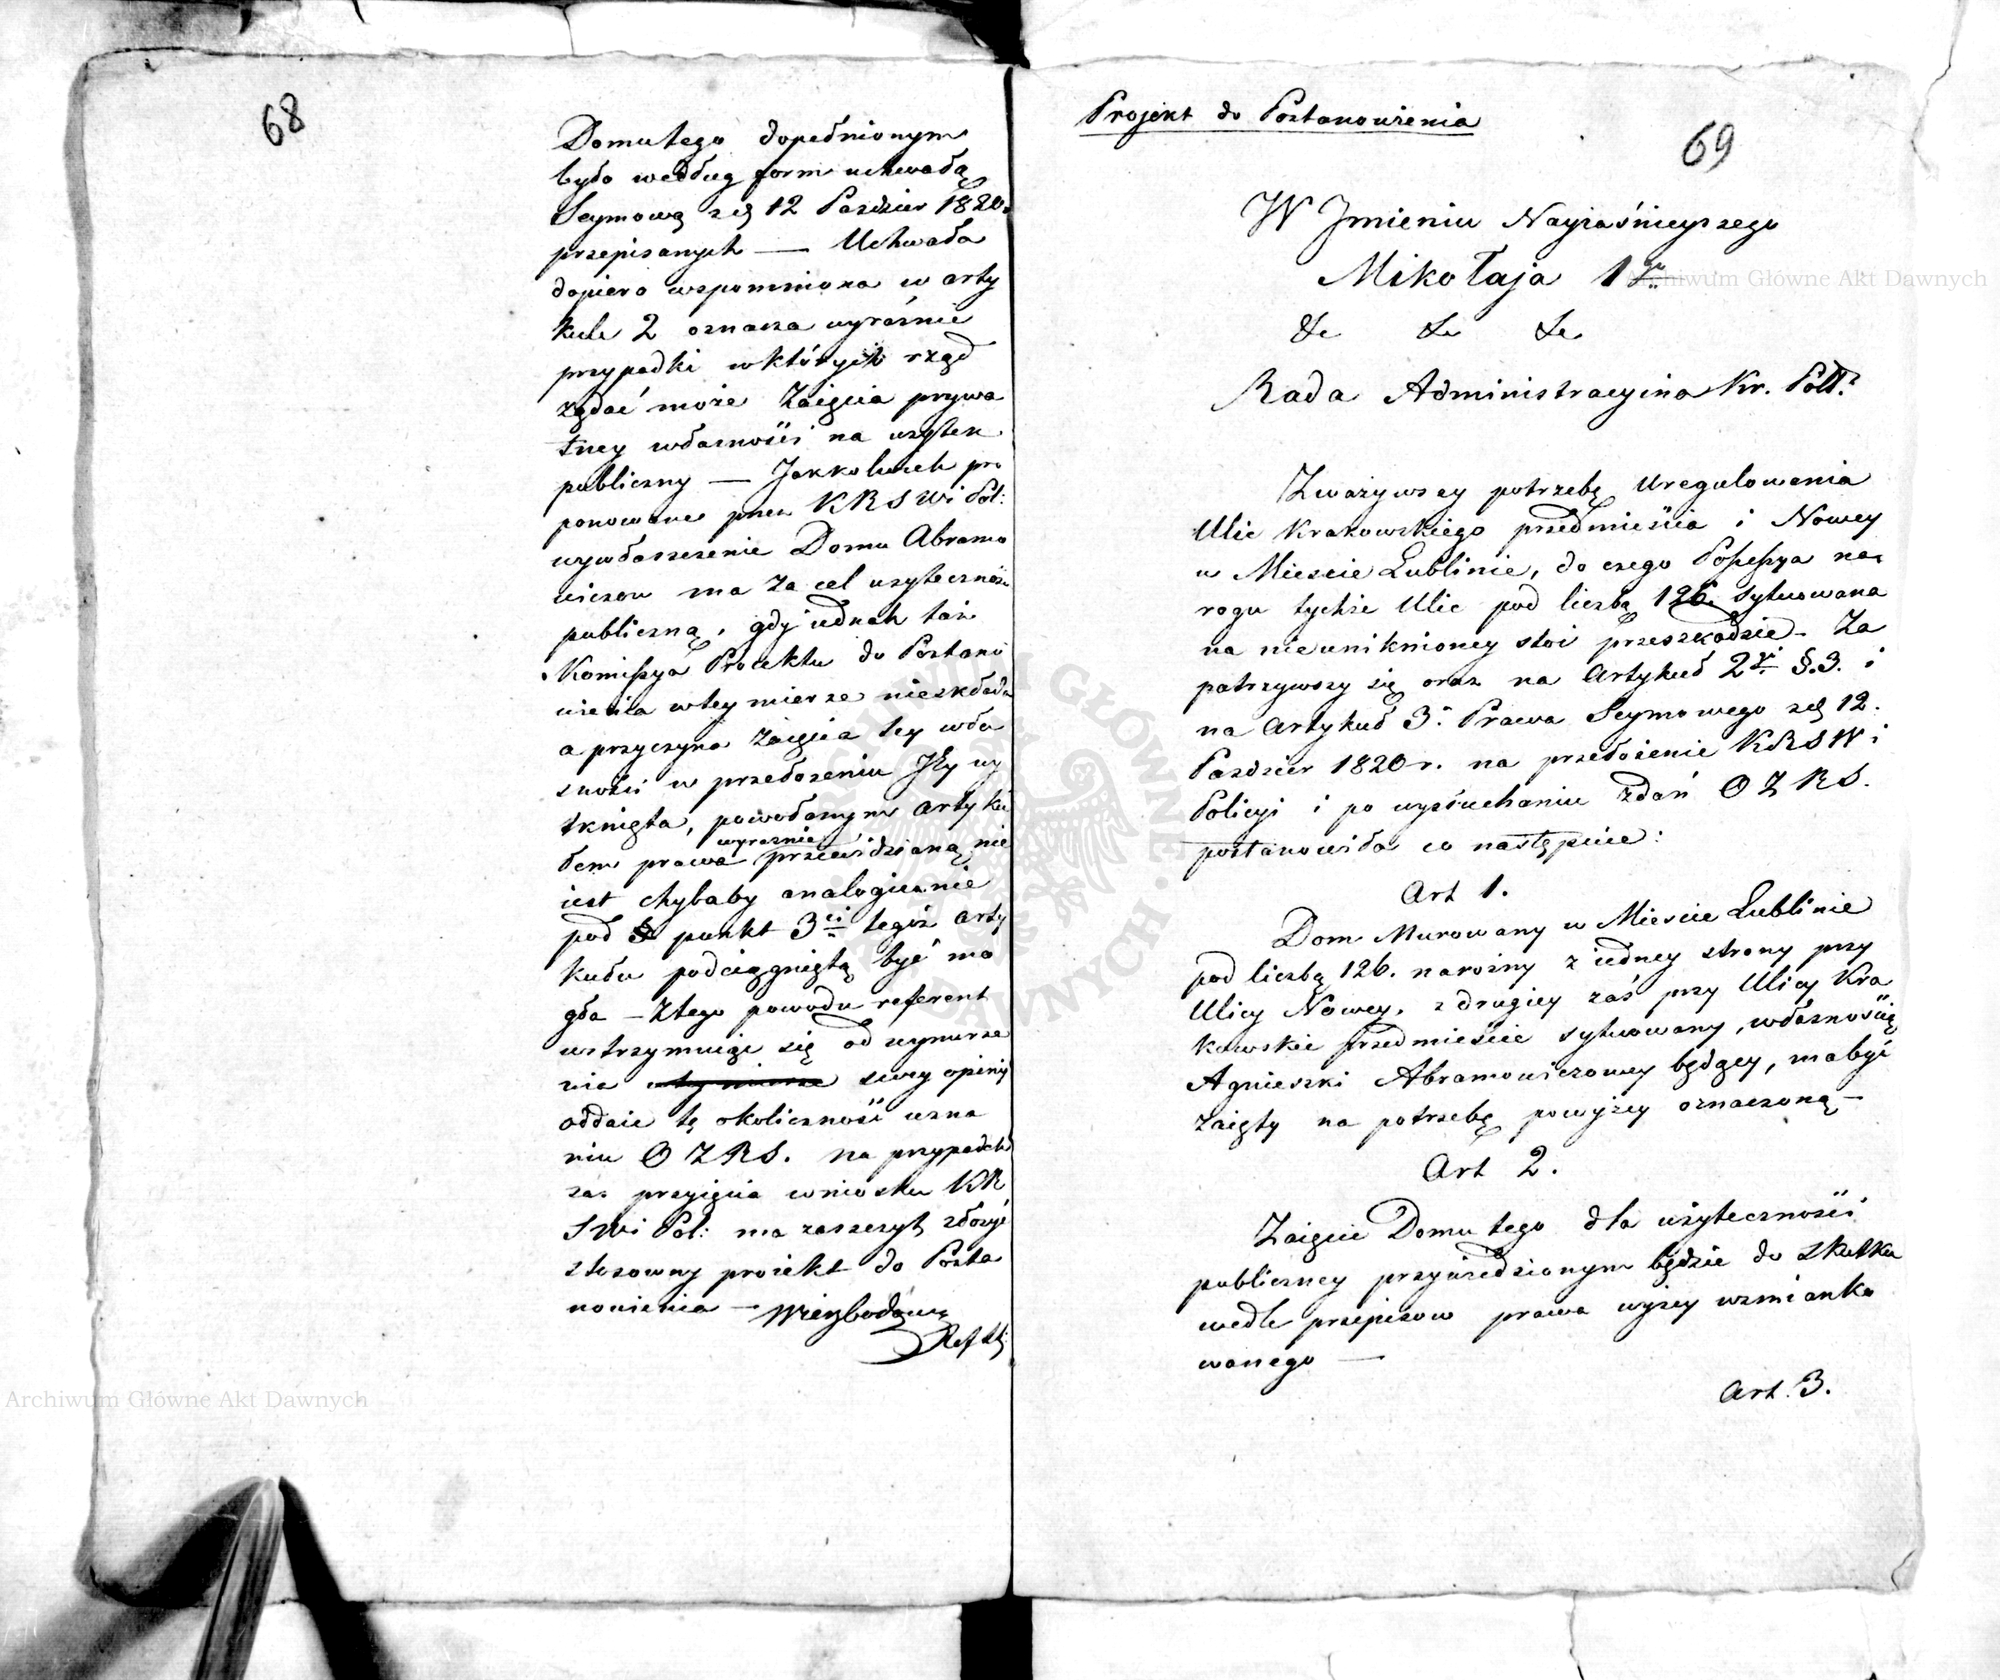 68
Domu tego dopełnionym
było według form uchwałą
Seymową z d 12 Paździer 1820.
przepisanych — Uchwała
dopiero wspomniona w arty
kule 2 oznacza wyraźnie
przypadki w których rząd
żądać może Zaięcia prywa
tney własności na użytek
publiczny — Jakkolwiek pro
ponowane przez KRSWi Pol:
wywłaszczenie Domu Abramo
wiczow ma za cel użyteczność
publiczną, gdy iednak taż
Kommissya Proiektu do Postano
wienia w tey mierze nieskłada
a przyczyna zaięcia tey wła
sności w przełożeniu Jey wy
tknięta, powołanym artyku
łem prawa wyraźnie przewidzianą nie
iest chybaby analogicznie
pod punkt 3ci tegoż arty
kułu podciągniętą być mo
gła — Z tego powodu referent
wstrzymuiąc się od wynurze
nia swey opinij
oddaie tę okoliczność uzna
niu OZRS. na przypadek
zaś przyięcia wniosku KR
SWi Pol: ma zaszczyt złożyć
stosowny proiekt do Posta
nowienia —
Ref St:
Projekt do Postanowienia
69
W Jmieniu Nayiaśnieyszego
Mikołaja 1go
&c &c &c
Rada Administracyina Kr. Pols.
Zważywszy potrzebę uregulowania
Ulic Krakowskiego przedmieścia i Nowey
w Mieście Lublinie, do czego Possessya na
rogu tychże Ulic pod liczbą 126. sytuowana
na nieuniknioney stoi przeszkodzie — Za
patrzywszy się oraz na Artykuł 2gi §.3. i
na Artykuł 3. Prawa Seymowego z d 12.
Paździer 1820 r. na przełożenie KRSW i
Policyi i po wysłuchaniu zdań OZRS.
postanowiła co następuie:
Art 1.
Dom Murowany w Mieście Lublinie
pod liczbą 126. narożny z iedney strony przy
Ulicy Nowey, z drugiey zaś przy Ulicy Kra
kowskie przedmieście sytuowany, własnością
Agnieszki Abramowiczowey będący, ma być
zaięty na potrzebę powyżey oznaczoną —
Art 2.
Zaięcie Domu tego dla użyteczności
publiczney przywiedzionym będzie do skutku
wedle przepisow prawa wyżey wzmianko
wanego —
Art. 3.
Archiwum Główne Akt Dawnych
Archiwum Główne Akt Dawnych